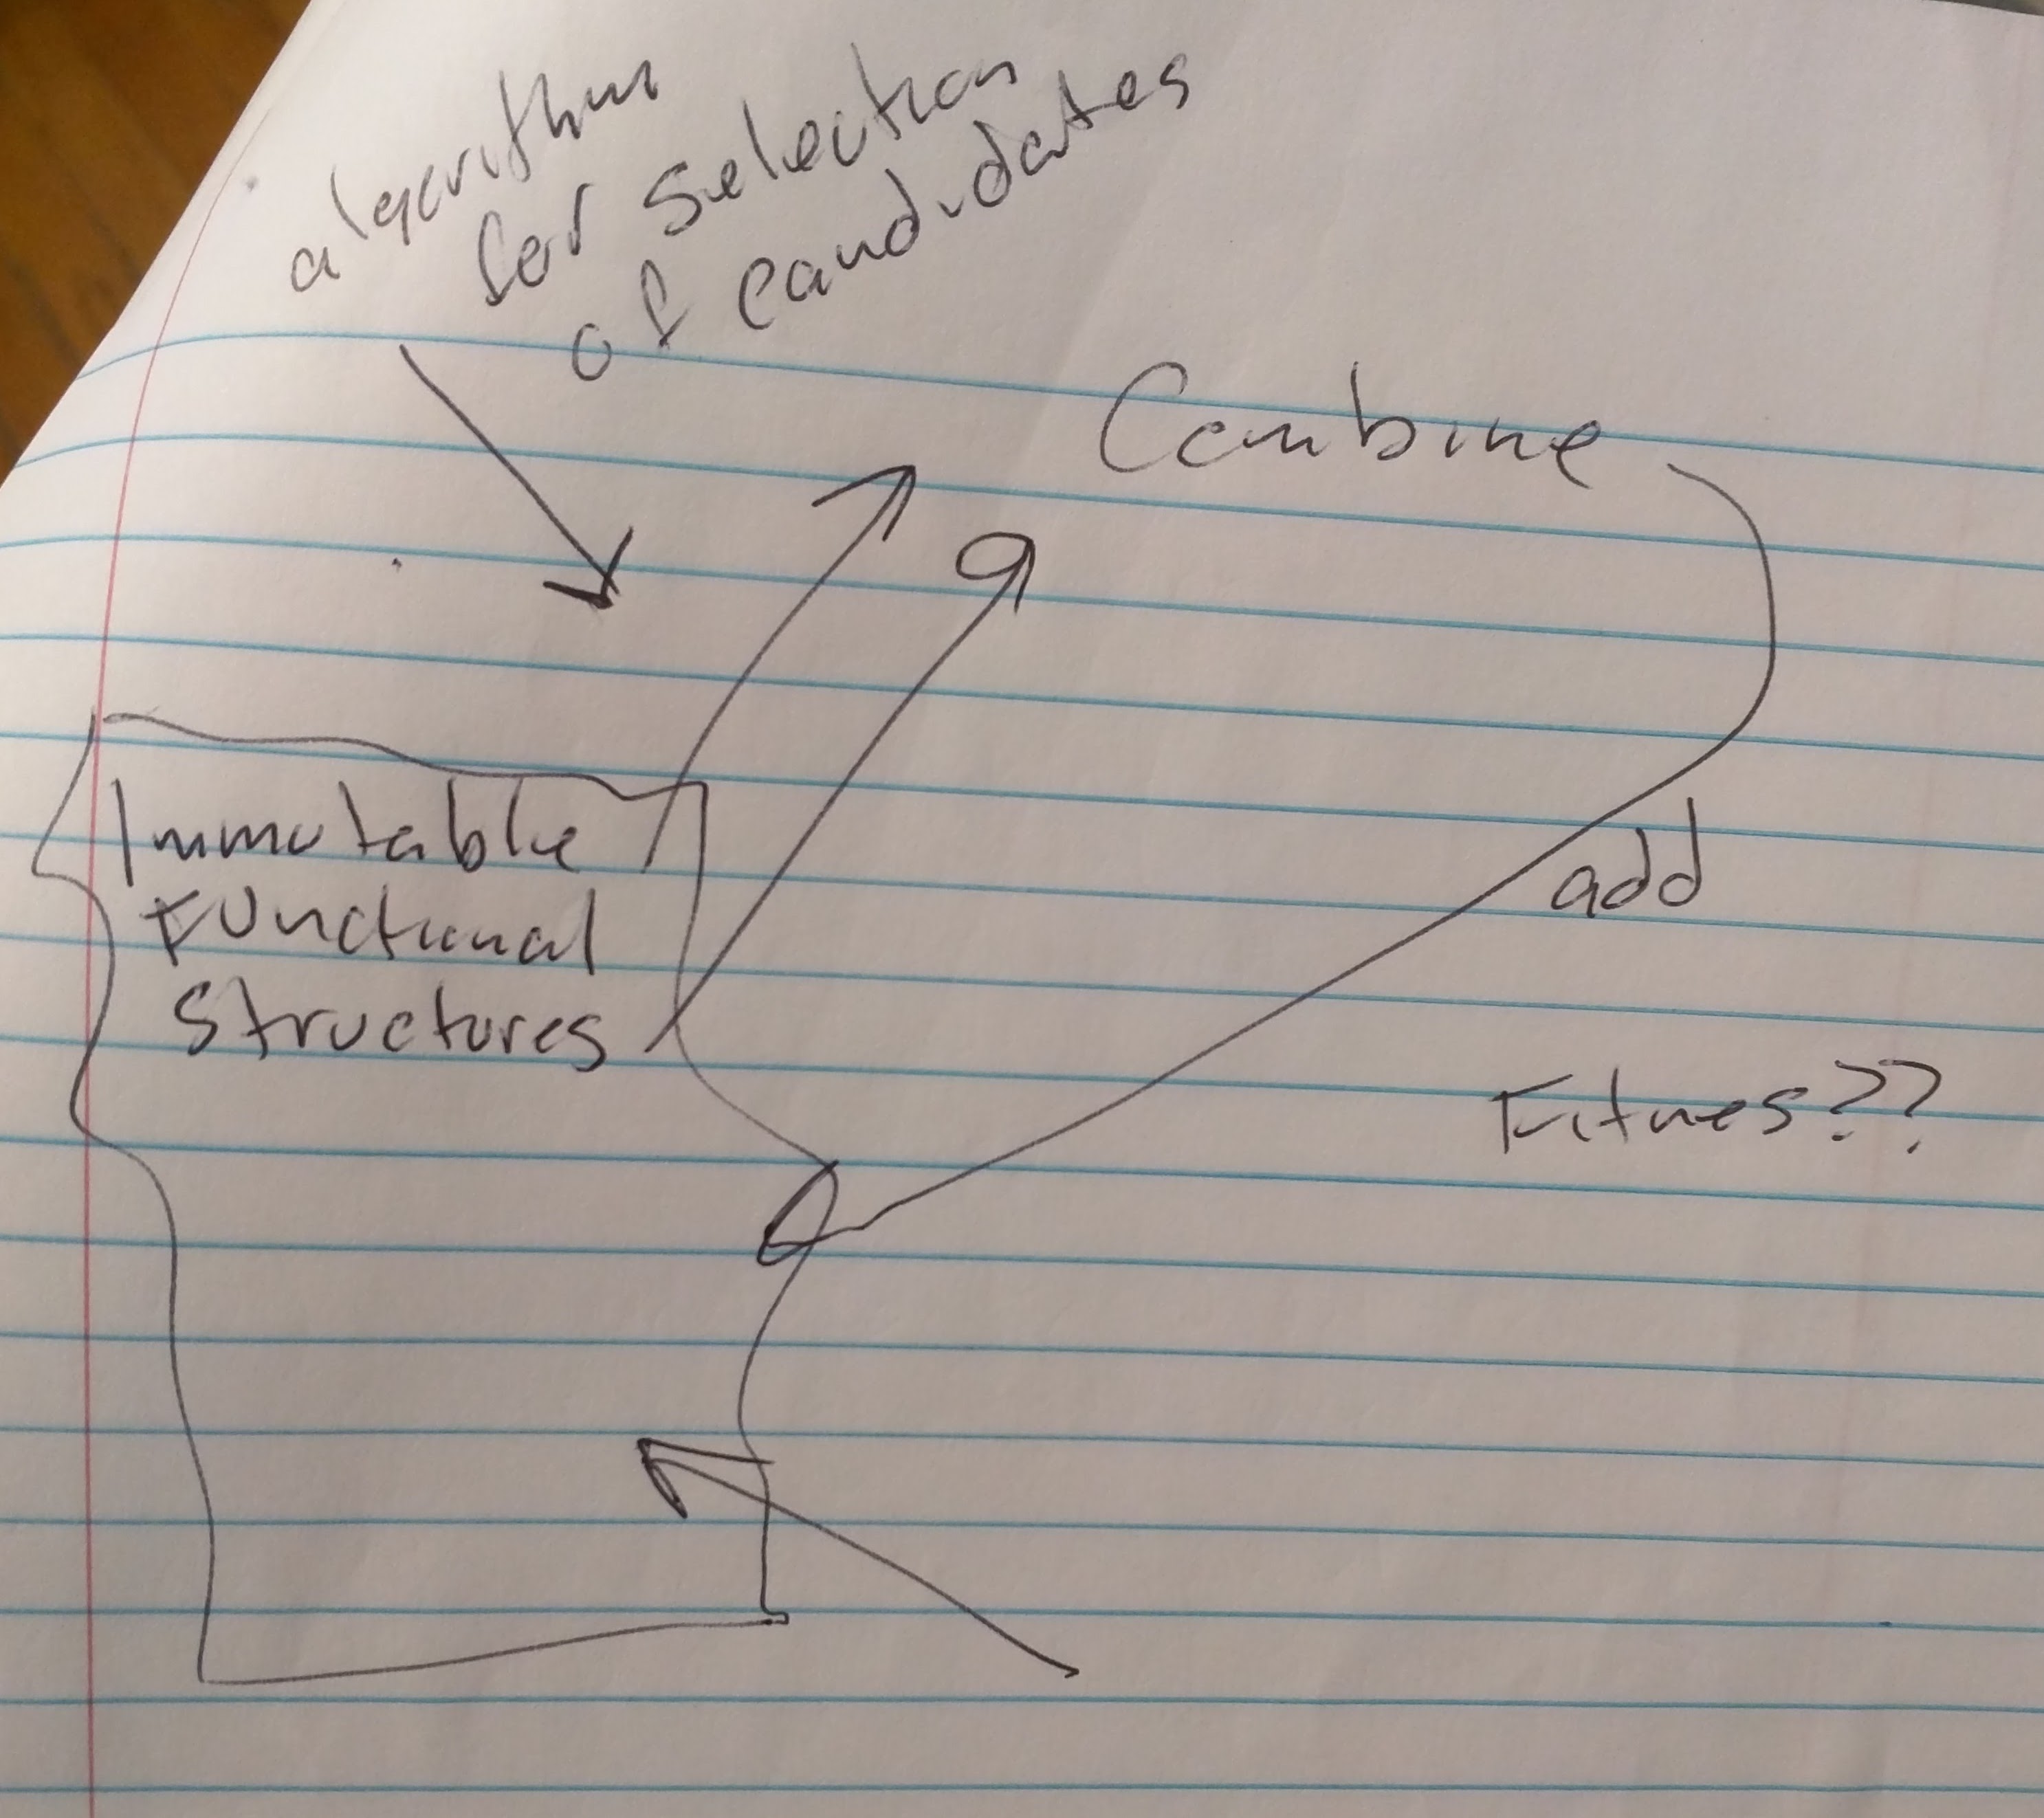 algorithm
for selection
of candidates
Combine
Immutable
Functional
Structures
add
Fitnes??